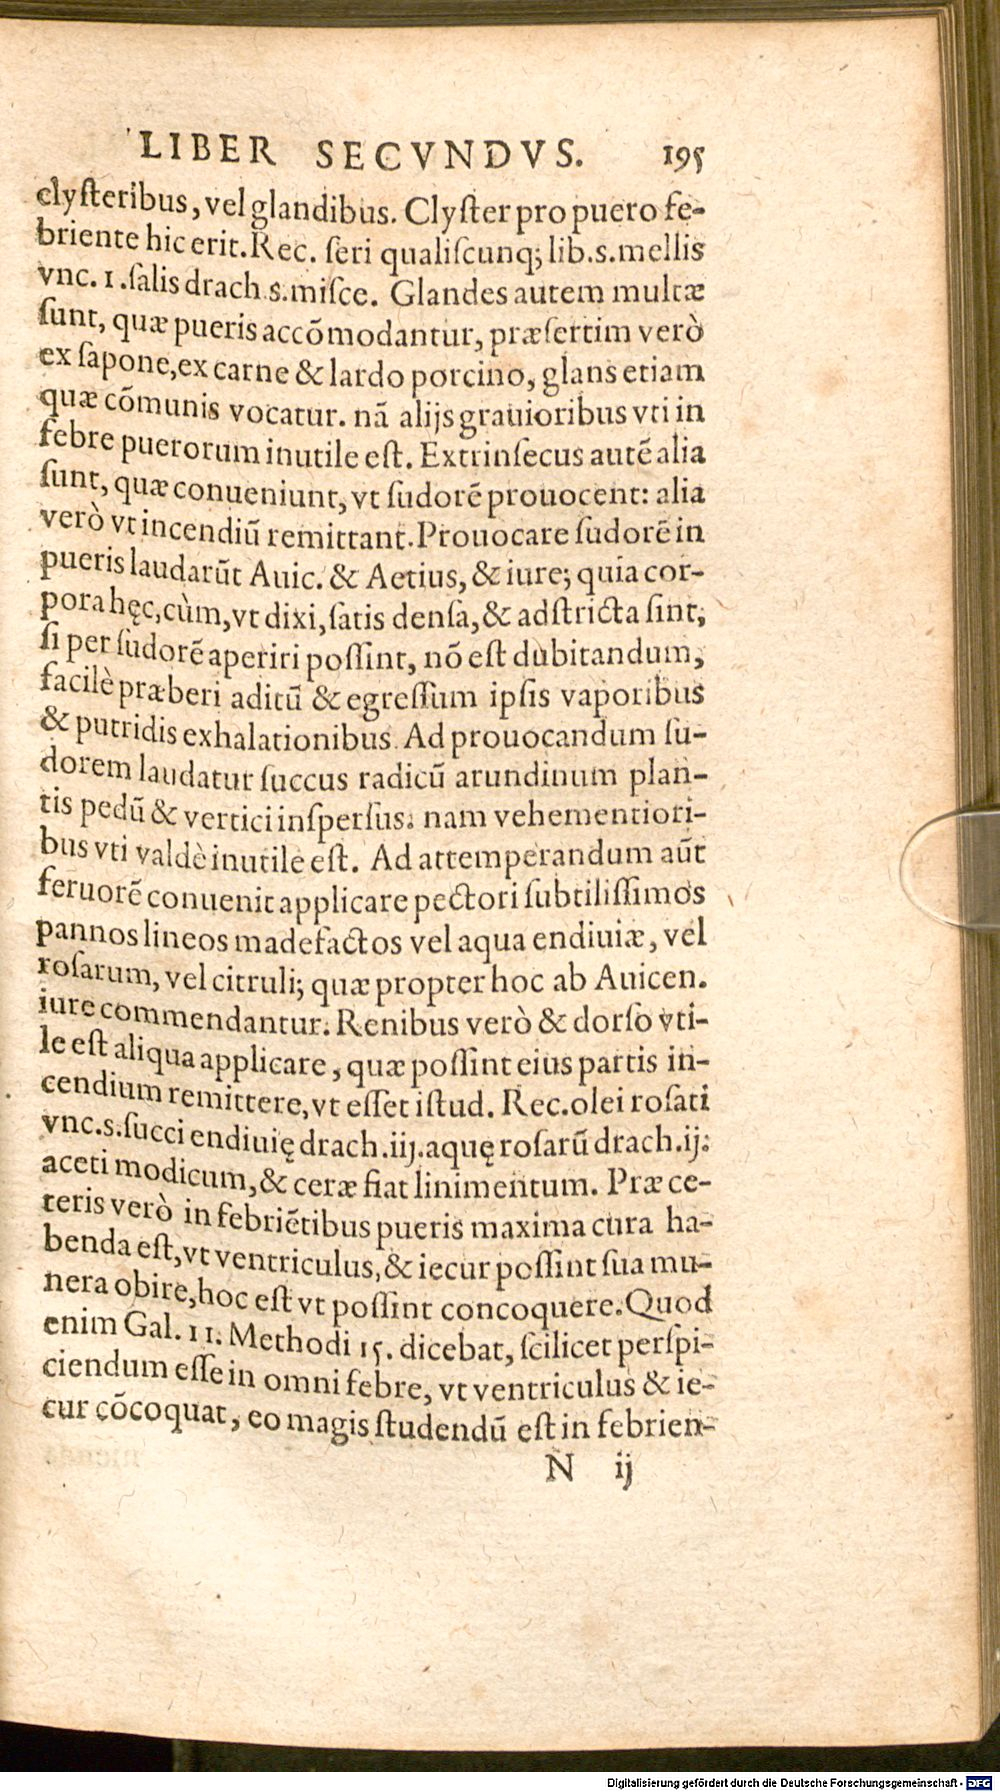 LIBER SECVNDVS. 195
clyſteribus, vel glandibus. Clyſter pro puero fe-
briente hic erit. Rec. ſeri qualiſcunq; lib.s.mellis
vnc. 1 .ſalis drach.s.miſce. Glandes autem multæ
ſunt, quæ pueris accõmodantur, præſertim verò
ex ſapone, ex carne & lardo porcino, glans etiam
quæ cõmunis vocatur. nã alijs grauioribus vti in
febre puerorum inutile eſt. Extrinſecus autẽ alia
ſunt, quæ conueniunt, vt ſudorẽ prouocent: alia
verò vt incendiũ remittant. Prouocare ſudorẽ in
pueris laudarũt Auic. & Aetius, & iure; quia cor-
pora hęc, cùm, vt dixi, ſatis denſa, & adſtricta ſint,
ſi per ſudorẽ aperiri poſſint, nõ eſt dubitandum,
facilè præberi aditũ & egreſſum ipſis vaporibus
& putridis exhalationibus. Ad prouocandum ſu-
dorem laudatur ſuccus radicũ arundinum plan-
tis pedũ & vertici inſperſus. nam vehementiori-
bus vti valdè inutile eſt. Ad attemperandum aũt
feruorẽ conuenit applicare pectori ſubtiliſſimos
pannos lineos madefactos vel aqua endiuiæ, vel
roſarum, vel citruli; quæ propter hoc ab Auicen.
iure commendantur. Renibus verò & dorſo vti-
le eſt aliqua applicare, quæ poſſint eius partis in-
cendium remittere, vt eſſet iſtud. Rec. olei roſati
vnc.s.ſucci endiuię drach.iij.aquę roſarũ drach.ij.
aceti modicum, & ceræ fiat linimentum. Præ ce-
teris verò in febriẽtibus pueris maxima cura ha-
benda eſt, vt ventriculus, & iecur poſſint ſua mu-
nera obire, hoc eſt vt poſſint concoquere. Quod
enim Gal. 11. Methodi 15. dicebat, ſcilicet perſpi-
ciendum eſſe in omni febre, vt ventriculus & ie-
cur cõcoquat, eo magis ſtudendũ eſt in febrien-
N ij
Digitalisierung gefördert durch die Deutsche Forschungsgemeinschaft - DFG